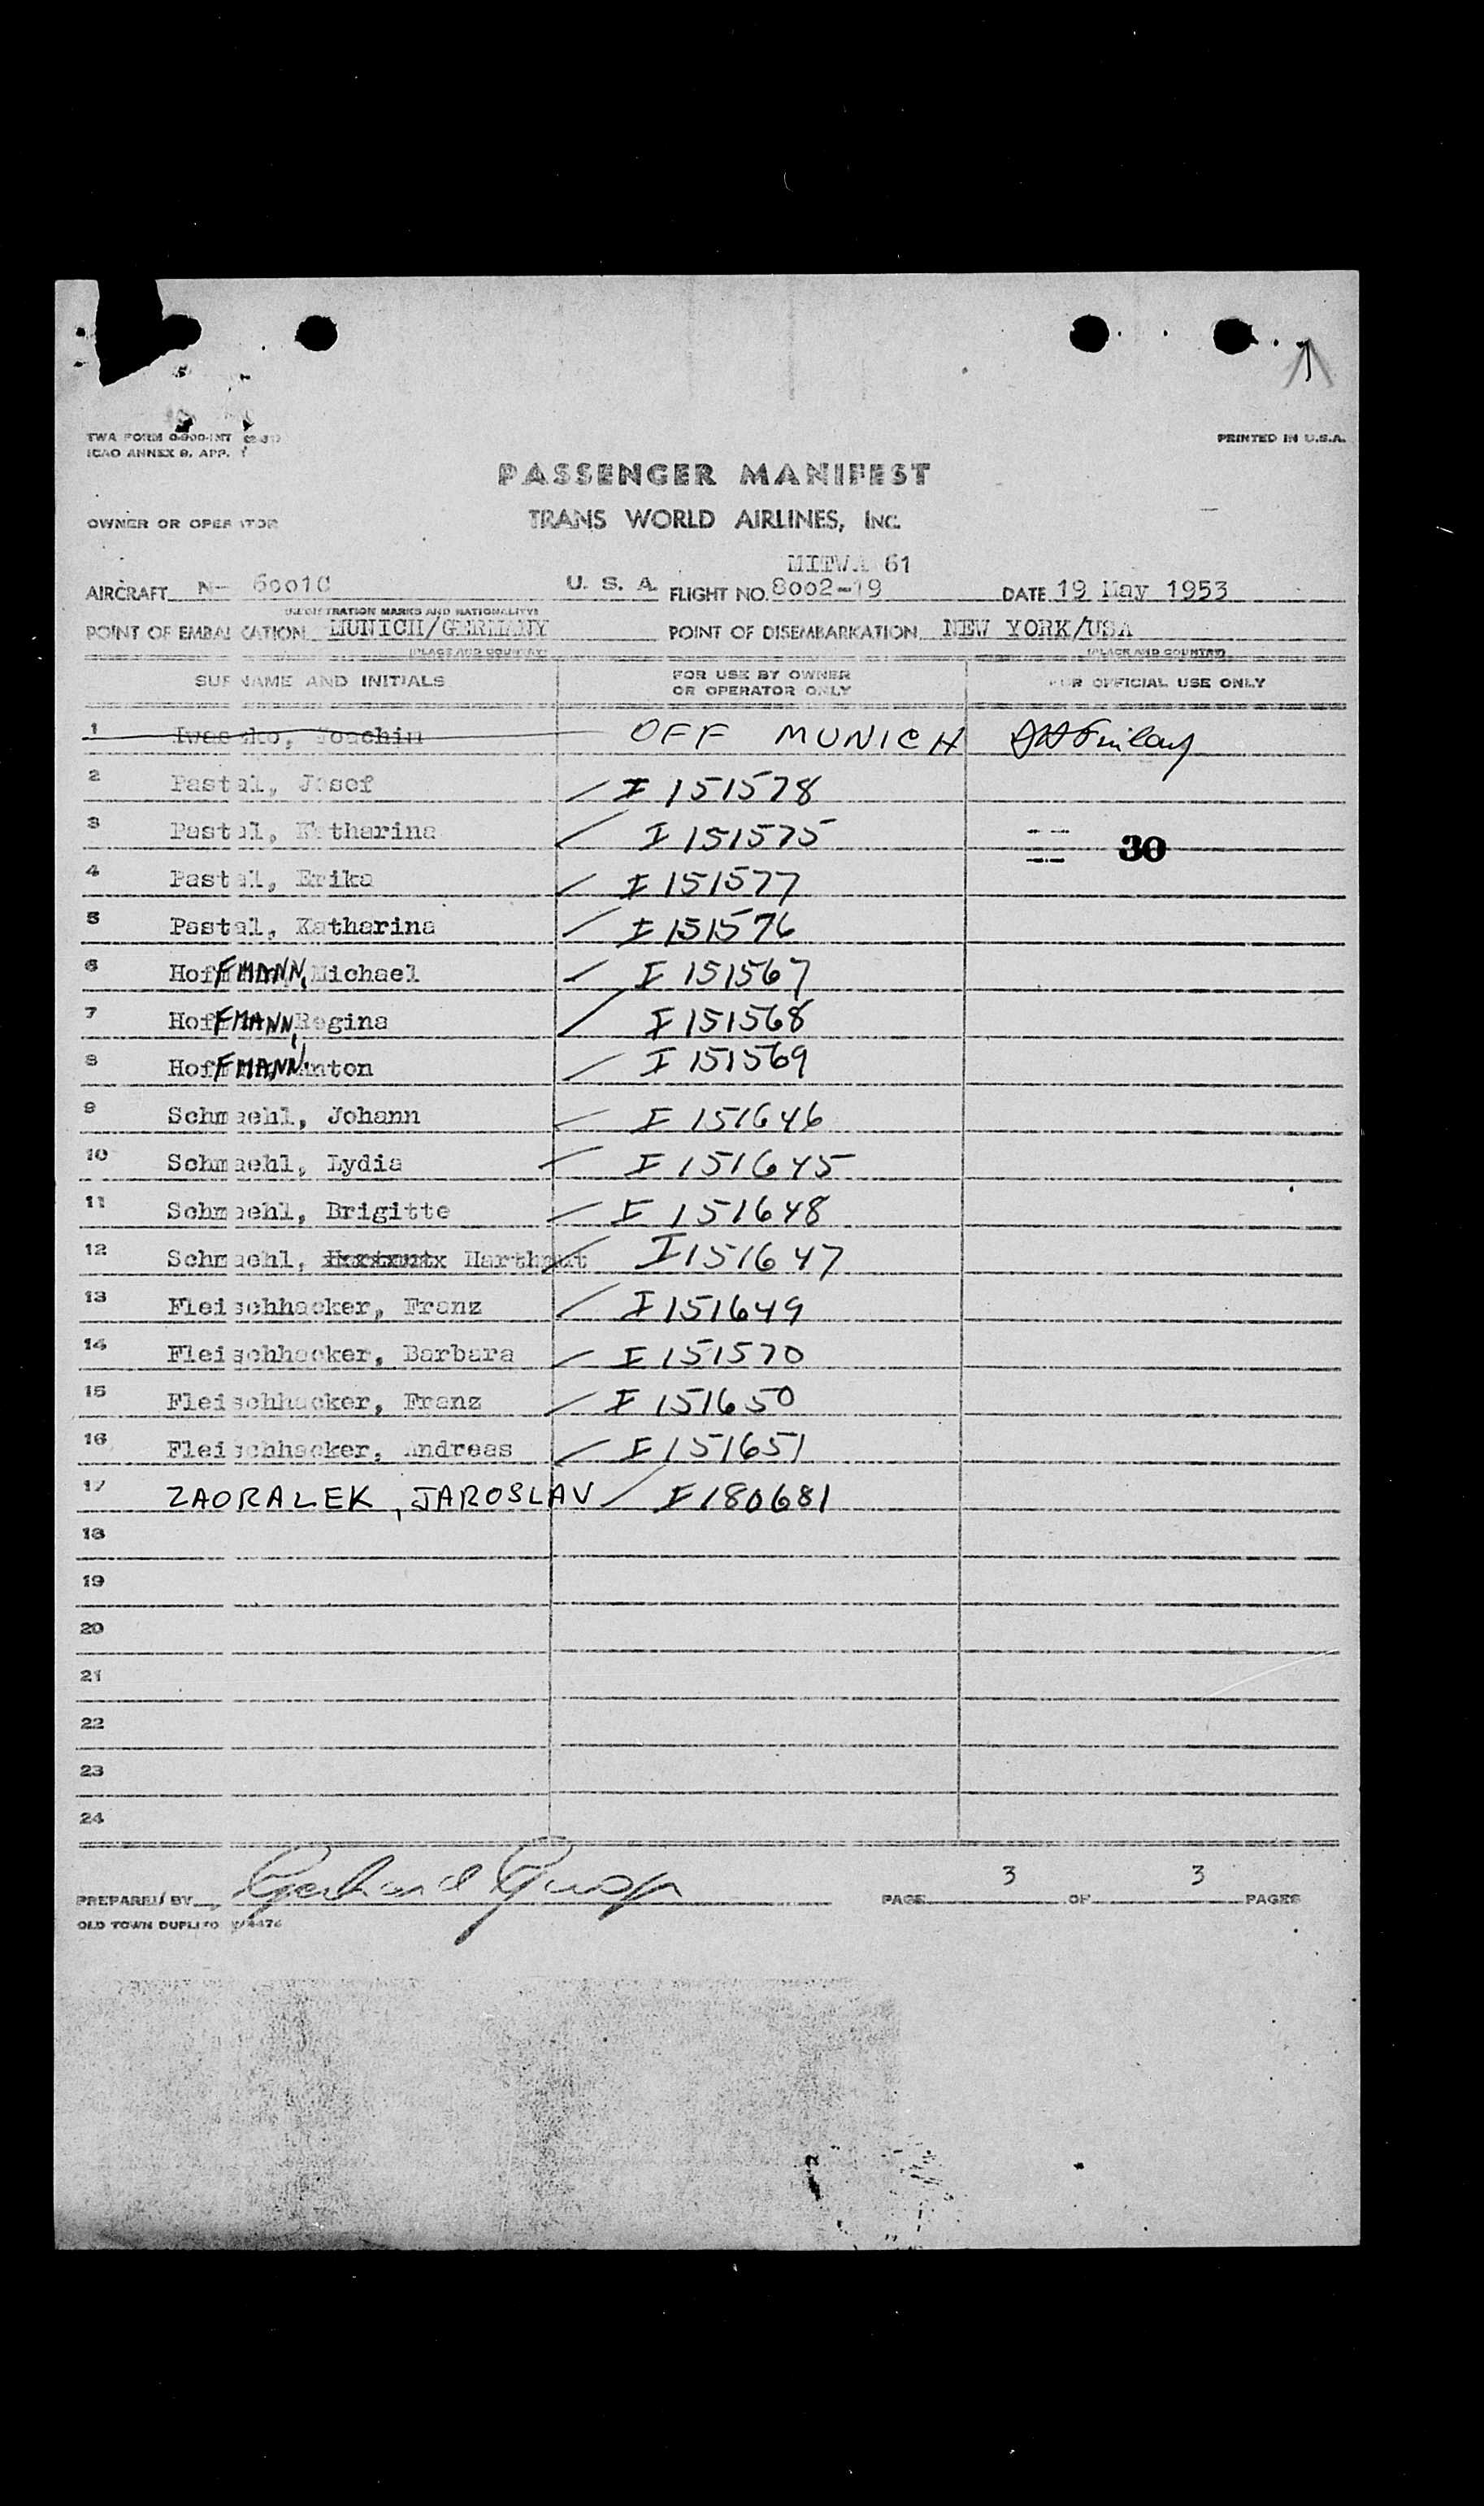 TWA FORM
ICAO ANNEX 9, APP. 1
PRINTED IN U.S.A.
PASSENGER MANIFEST
OWNER OR OPERATOR
TRANS WORLD AIRLINES, INC.
MITWA 61
AIRCRAFT N- 6001C U. S. A. FLIGHT NO. 8002-19 DATE 19 May 1953
(REGISTRATION MARKS AND NATIONALITY)
POINT OF EMBARCATION MUNICH/GERMANY POINT OF DISEMBARKATION NEW YORK/USA
(PLACE AND COUNTRY) (PLACE AND COUNTRY)
SURNAME AND INITIALS FOR USE BY OWNER OR OPERATOR ONLY FOR OFFICIAL USE ONLY
1 Joachim OFF MUNICH
2 Pastal, Josef I 151578
3 Pastal, Katharina I 151575 30
4 Pastal, Erika I 151577
5 Pastal, Katharina I 151576
6 HofFMANN, Michael I 151567
7 HofFMANN, Regina I 151568
8 HofFMANN, Anton I 151569
9 Schmaehl, Johann I 151646
10 Schmaehl, Lydia I 151645
11 Schmaehl, Brigitte I 151648
12 Schmaehl, Harthmut I 151647
13 Fleischhacker, Franz I 151649
14 Fleischhacker, Barbara I 151570
15 Fleischhacker, Franz I 151650
16 Fleischhacker, Andreas I 151651
17 ZAORALEK, JAROSLAV I 180681
18
19
20
21
22
23
24
PREPARED BY Gerhard PAGE 3 OF 3 PAGES
OLD TOWN